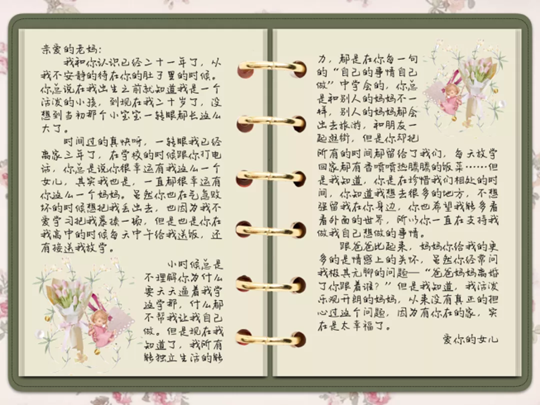 亲爱的老妈：
我和你认识已经二十一年了，从
我不安静的待在你的肚子里的时候。
你总说在我出生之前就知道我是一个
活泼的小孩，到现在我二十岁了，没
想到当初那个小宝宝一转眼都长这么
大了。
时间过的真快呀，一转眼我已经
离家三年了，在学校的时候跟你打电
话，你总是说你很幸运有我这么一个
女儿，其实我也是，一直都很幸运有
你这么一个妈妈。虽然你也在气急败
坏的时候想把我丢出去，也因为我不
爱学习把我暴揍一顿，但是也是你在
我高中的时候每天中午给我送饭，还
有接送我放学。
小时候总是
不理解你为什么
要天天逼着我学
这学那，什么都
不帮我让我自己
做。但是现在我
知道了，我所有
能独立生活的能
力，都是在你每一句
的“自己的事情自己
做”中学会的，你总
是和别人的妈妈不一
样，别人的妈妈都会
出去旅游，和朋友一
起逛街，但是你却把
所有的时间都留给了我们，每天放学
回家都有香喷喷热腾腾的饭菜……但
是我知道，你是在珍惜我们相处的时
间，你知道我想去很多的地方，不想
强留我在你身边，你也希望我能多看
看外面的世界，所以你一直在支持我
做我自己想做的事情。
跟爸爸比起来，妈妈你给我的更
多的是情感上的关怀，虽然你经常问
我极其无聊的问题—“爸爸妈妈离婚
了你跟着谁？”但是我知道，我活泼
乐观开朗的妈妈，从来没有真正的担
心过这个问题，因为有你在的家，实
在是太幸福了。
爱你的女儿